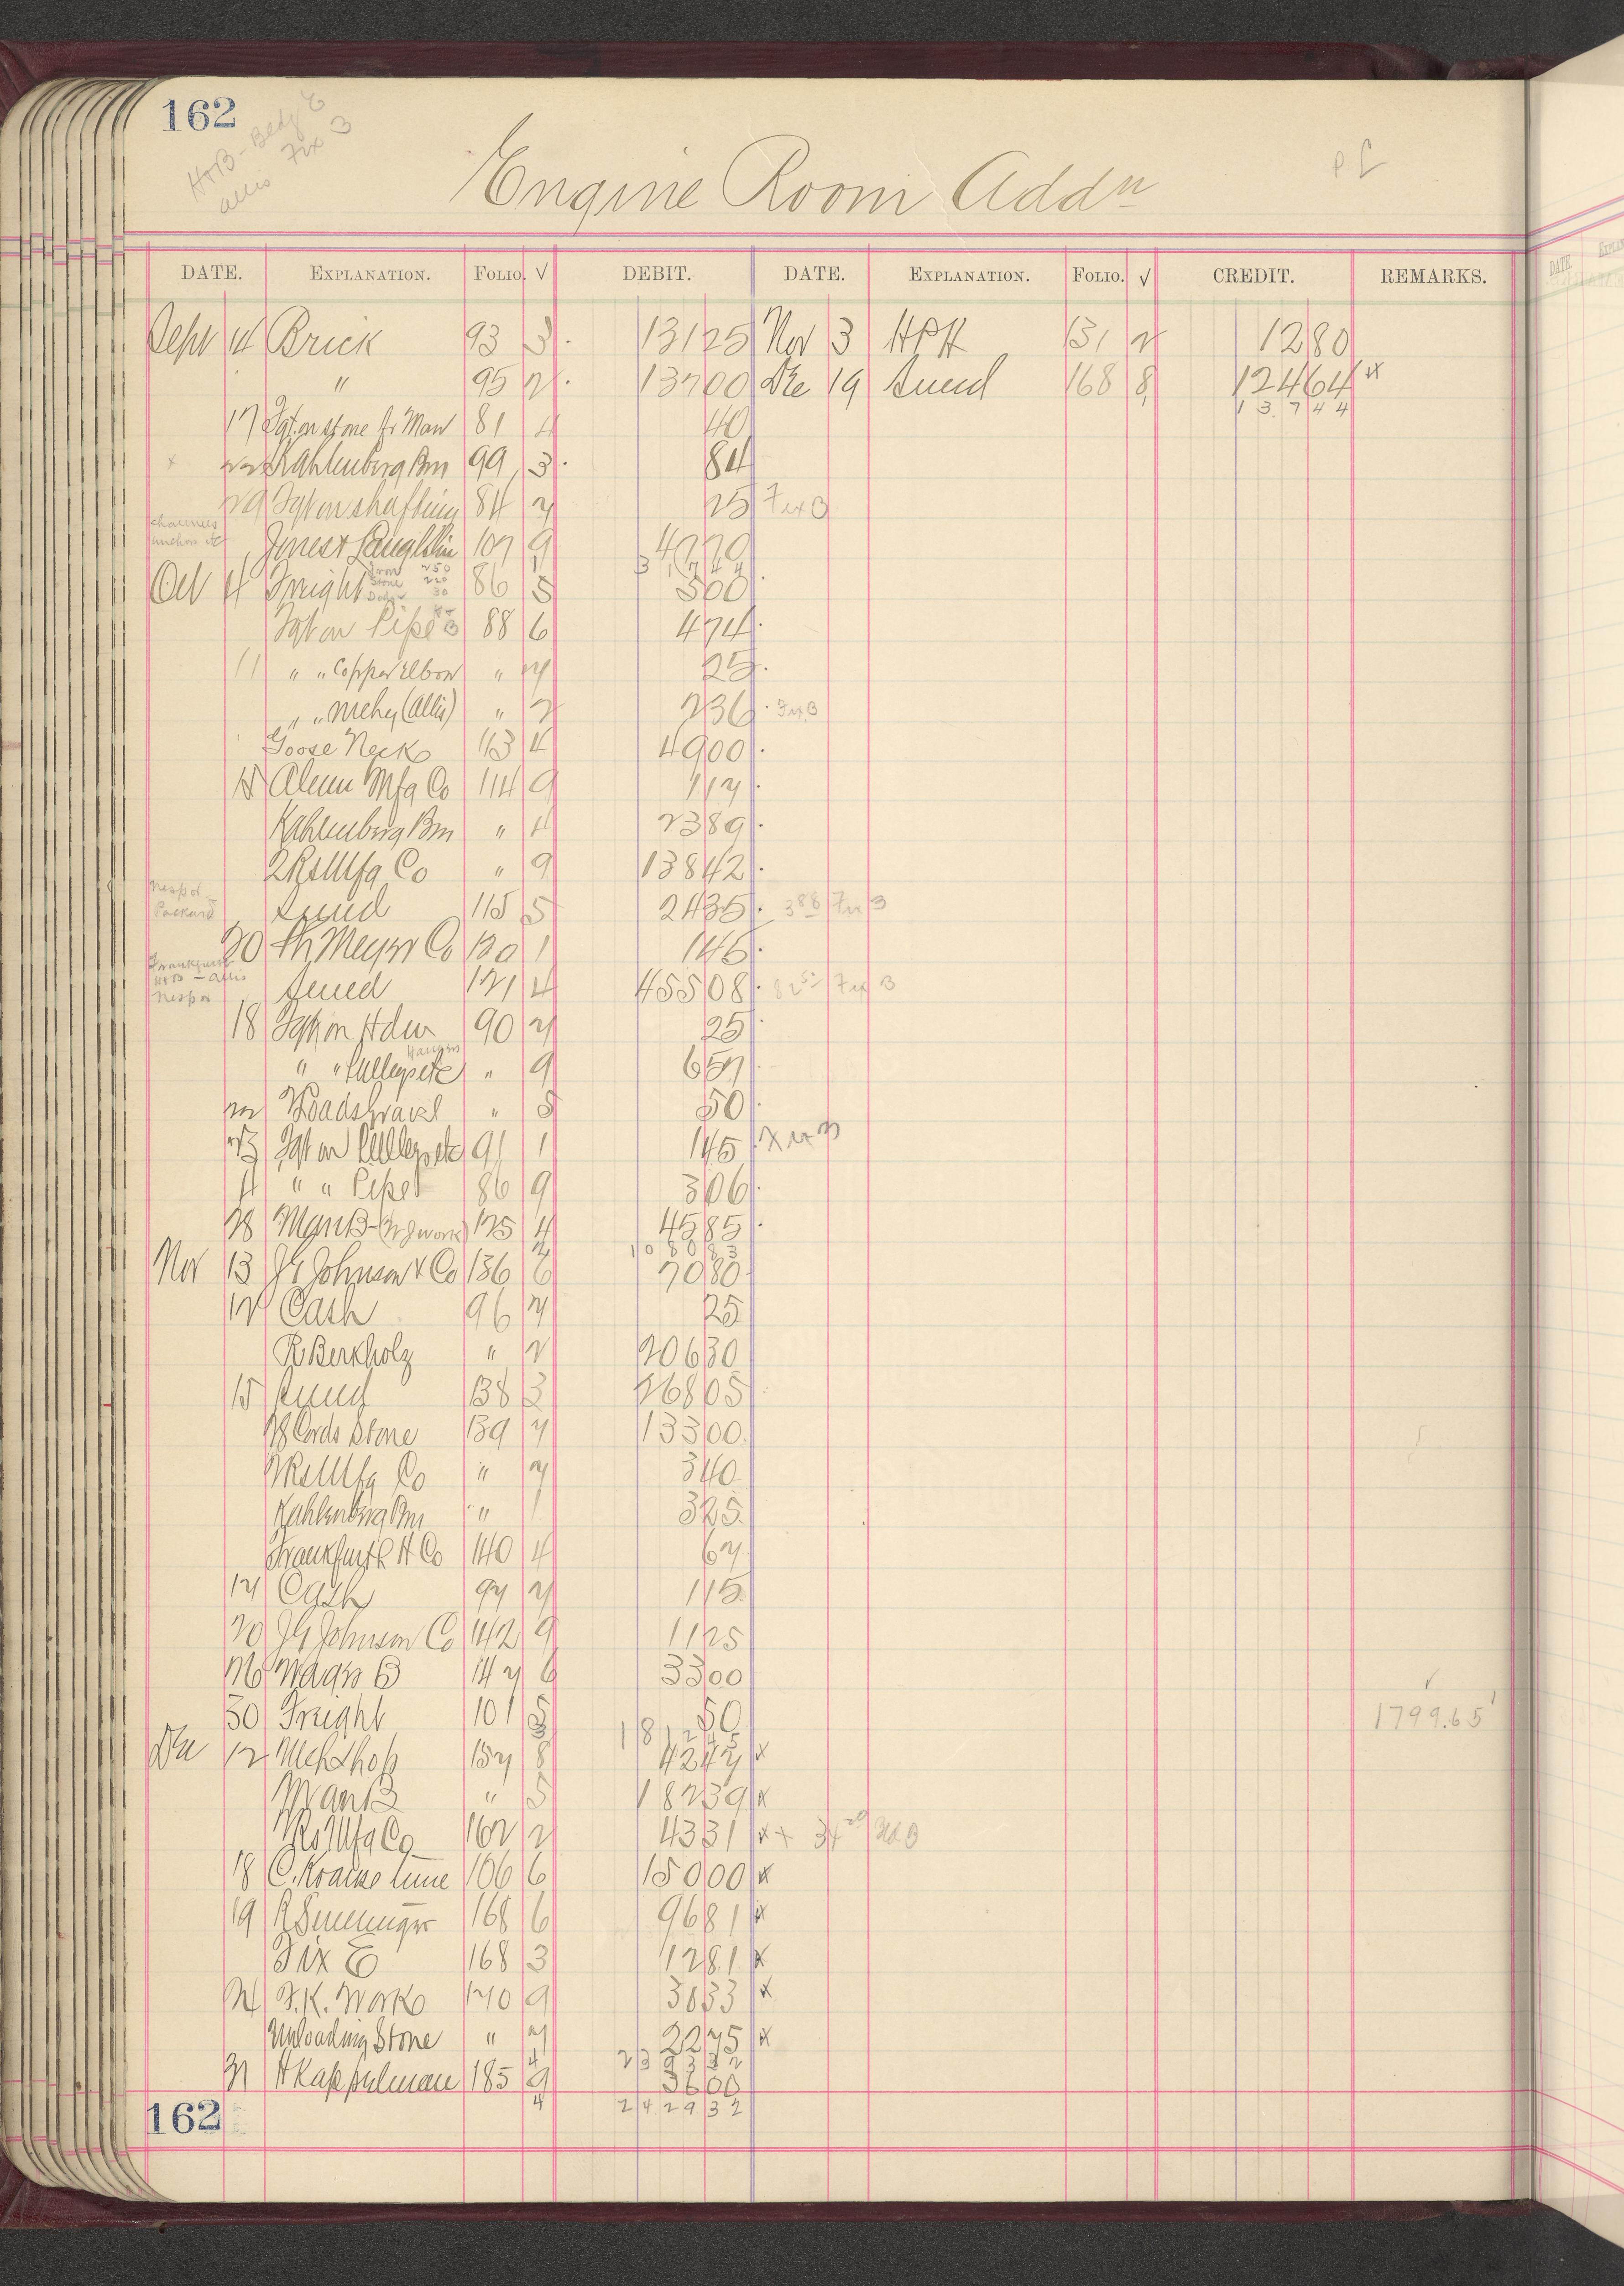 162
H+B - Bldg E
Allis Fix 3
Engine Room Addn
DATE. EXPLANATION. FOLIO. √ DEBIT. DATE. EXPLANATION. FOLIO. √ CREDIT. REMARKS.
Sept 14 Brick 93 3 131 25 Nov 3 HPH 131 2 12 80
" 95 2 137 00 Dec 19 Sund 168 8 124 64 x
137 44
17 Fgt on stone fr Man 81 4 40
x 22 Kahlenberg Bro 99 3 84
29 Fgt on shafting 84 7 25 Fix 3
Jones & Laughlin 107 9 42 70
Oct 4 Freight 86 5 5 00
Iron 2 50
Stone 2 20
30
Fgt on Pipe 88 6 4 74
11 " " Copper Elbow " 7 25
" " Mchy (Allis) " 2 2 36 Fix 3
Goose Neck 113 4 49 00
15 Alum Mfg Co 114 9 1 17
Kahlenberg Bro " 4 23 89
2 Rs Mfg Co " 9 138 42
Sund 115 5 24 35 3 88 Fix 3
20 Th Meyer Co 120 1 1 46
Frankfurth
H+B - Allis
Sund 121 4 455 08 82 52 Fix 3
18 Fgt on Hdw 90 7 25
Hangers
" " Pulleys etc " 9 6 57
22 Roads Gravel " 5 50
25 Fgt on Pulleys etc 91 1 1 45 Fix 3
4 " " Pipe 86 9 3 06
28 Man B 125 4 45 85
1080 83
Nov 13 JG Johnson & Co 136 6 70 80
12 Cash 96 7 25
R Berkholz " 2 206 30
15 Sund 138 3 268 05
28 Cords Stone 139 7 133 00
2 Rs Mfg Co " 7 3 40
Kahlenberg Bro " 1 3 25
Frankfurth H Co 140 4 67
17 Cash 97 7 1 15
20 JG Johnson Co 142 9 11 25
26 Wages B 147 6 33 00
30 Freight 101 5 50
1799.65
Dec 12 Mch Shop 157 8 42 47 x
Man B " 5 182 39 x
2 Rs Mfg Co 162 2 43 31 x
18 C. Krause lime 166 6 150 00 x
19 R 168 6 96 81 x
Fix E 168 3 12 81 x
24 F.K. Work 170 9 36 33 x
Unloading Stone " 7 22 75 x
2393 32
31 H Kappelman 185 9 36 00
4 2429 32
162